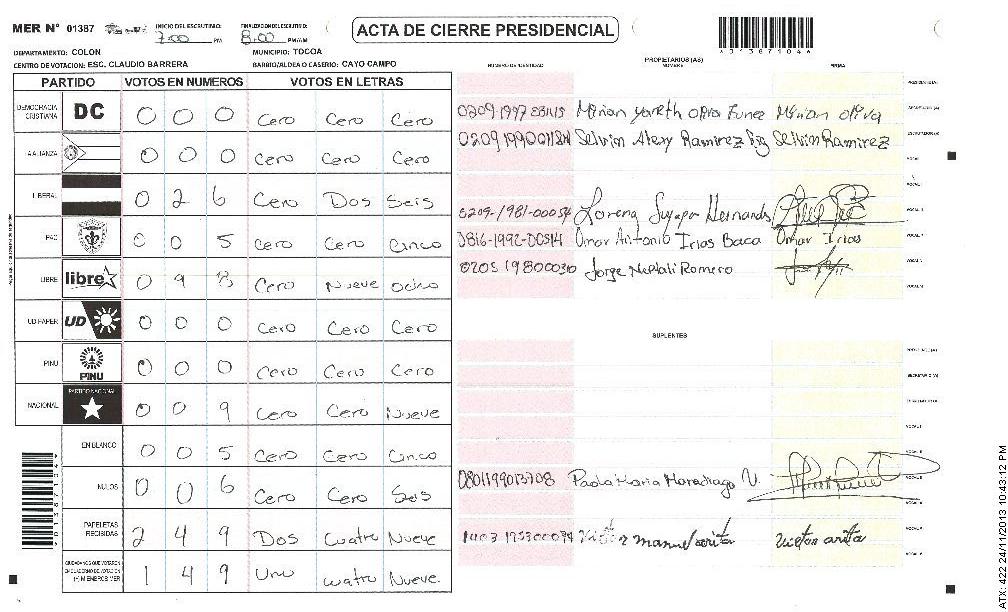 MER N° 01387 INICIO DEL ESCRUTINIO: 7:00 PM FINALIZACION DEL ESCRUTINIO: 8:00 PM/AM ACTA DE CIERRE PRESIDENCIAL
DEPARTAMENTO: COLON MUNICIPIO: TOCOA
CENTRO DE VOTACION: ESC. CLAUDIO BARRERA BARRIO/ALDEA O CASERIO: CAYO CAMPO
PARTIDO VOTOS EN NUMEROS VOTOS EN LETRAS
DEMOCRACIA CRISTIANA DC 0 0 0 Cero Cero Cero
LA ALIANZA 0 0 0 Cero Cero Cero
LIBERAL 0 2 6 Cero Dos Seis
PAC 0 0 5 Cero Cero Cinco
LIBRE libre 0 9 8 Cero Nueve Ocho
UD FAPER UD 0 0 0 Cero Cero Cero
PINU PINU 0 0 0 Cero Cero Cero
NACIONAL PARTIDO NACIONAL 0 0 9 Cero Cero Nueve
EN BLANCO 0 0 5 Cero Cero Cinco
NULOS 0 0 6 Cero Cero Seis
PAPELETAS RECIBIDAS 2 4 9 Dos Cuatro Nueve
CIUDADANOS QUE VOTARON EN CUADERNO DE VOTACION (+) MIEMBROS MER 1 4 9 Uno Cuatro Nueve
NUMERO DE IDENTIDAD PROPIETARIOS (AS) NOMBRE FIRMA
Mirian Yoreth Oliva Funez Mirian oliva
Selvin Alexy Ramirez Selvin Ramirez
0209-1981-00054 Lorena Suyapa Hernandez
0816-1992-00514 Omar Antonio Irias Baca Omar Irias
0205 19800030 Jorge Neftali Romero
SUPLENTES
0801199013708 Paola Maria Maradiaga V.
manuel arita Victor arita
ATX: 422 24/11/2013 10:43:12 PM